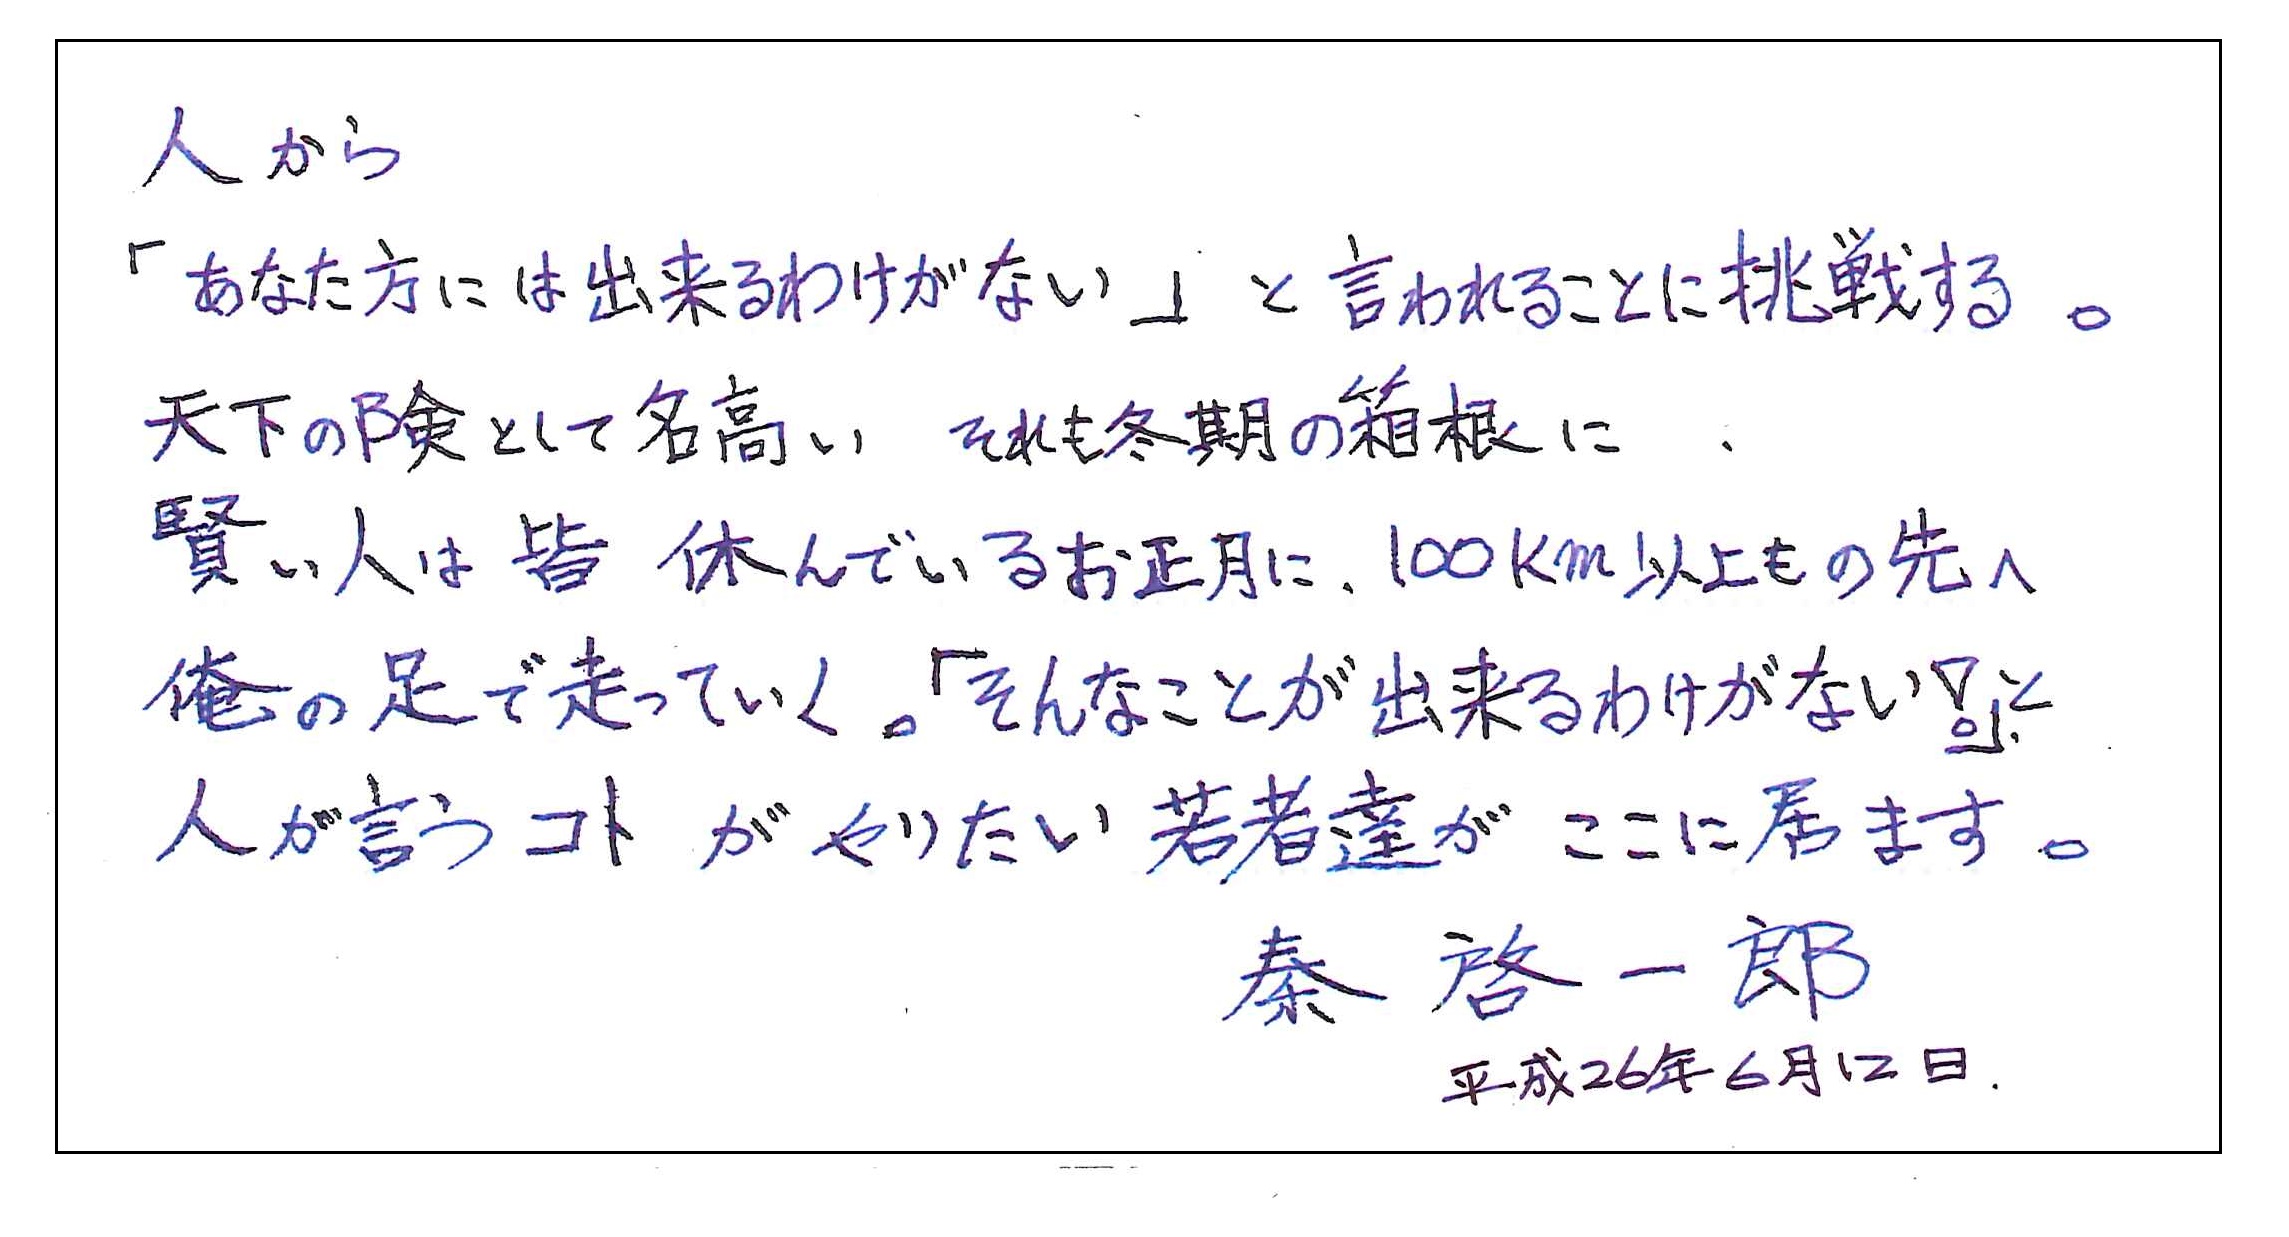 人から
「あなた方には出来るわけがない」と言われることに挑戦する。
天下の険として名高い それも冬期の箱根に
賢い人は皆 休んでいるお正月に、100km以上もの先へ
俺の足で走っていく。「そんなことが出来るわけがない！」と
人が言うコトがやりたい若者達がここに居ます。
秦 啓一郎
平成26年6月12日.